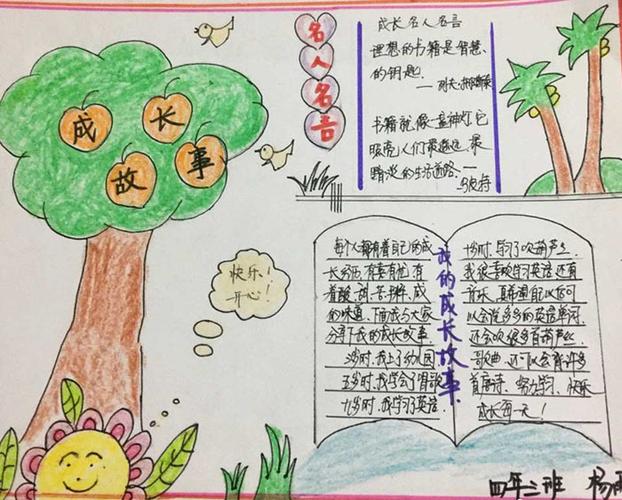 成长故事
名人名言
成长名人名言
理想的书籍是智慧
的钥匙.
书籍就像一盏神灯,它
照亮人们最遥远、最
暗淡的生活道路.
快乐!
开心!
我的成长故事
每个人都有着自己的成
长经历,有喜有忧,有
着酸、甜、苦、辣、咸
的味道.下面我与大家
分享下我的成长故事.
3岁时,我上了幼儿园
五岁时,我学会了唱歌
九岁时,我学习了英语.
10岁时,学习了吹葫芦丝.
我很喜欢学习英语还有
音乐.真希望自己以后可
以会说多多的英语单词.
还会吹很多首葫芦丝
歌曲.还可以会背许多
首唐诗.努力学习,快乐
成长每一天!
四年二班 杨